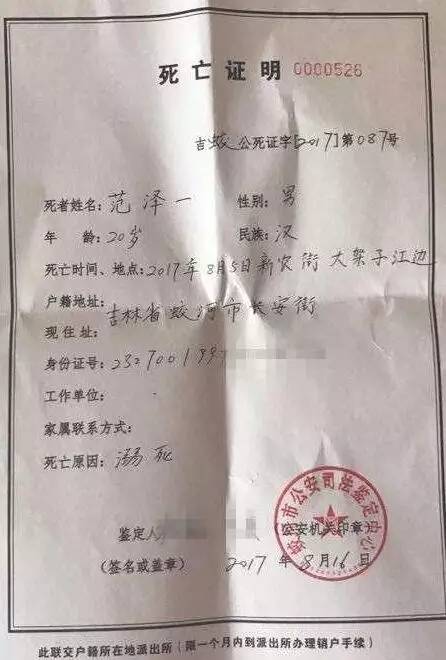 死亡证明 0000526
吉蛟公死证字[2017]第087号
死者姓名：范泽一 性别：男
年 龄：20岁 民族：汉
死亡时间、地点：2017年8月5日新农街大架子江边
户籍地址：
吉林省蛟河市长安街
现住址：
身份证号：2327001997
工作单位：
家属联系方式：
死亡原因：溺死
鉴定人
（公安机关印章）
（签名或盖章） 2017年8月16日
市公安司法鉴定中心
此联交户籍所在地派出所（限一个月内到派出所办理销户手续）